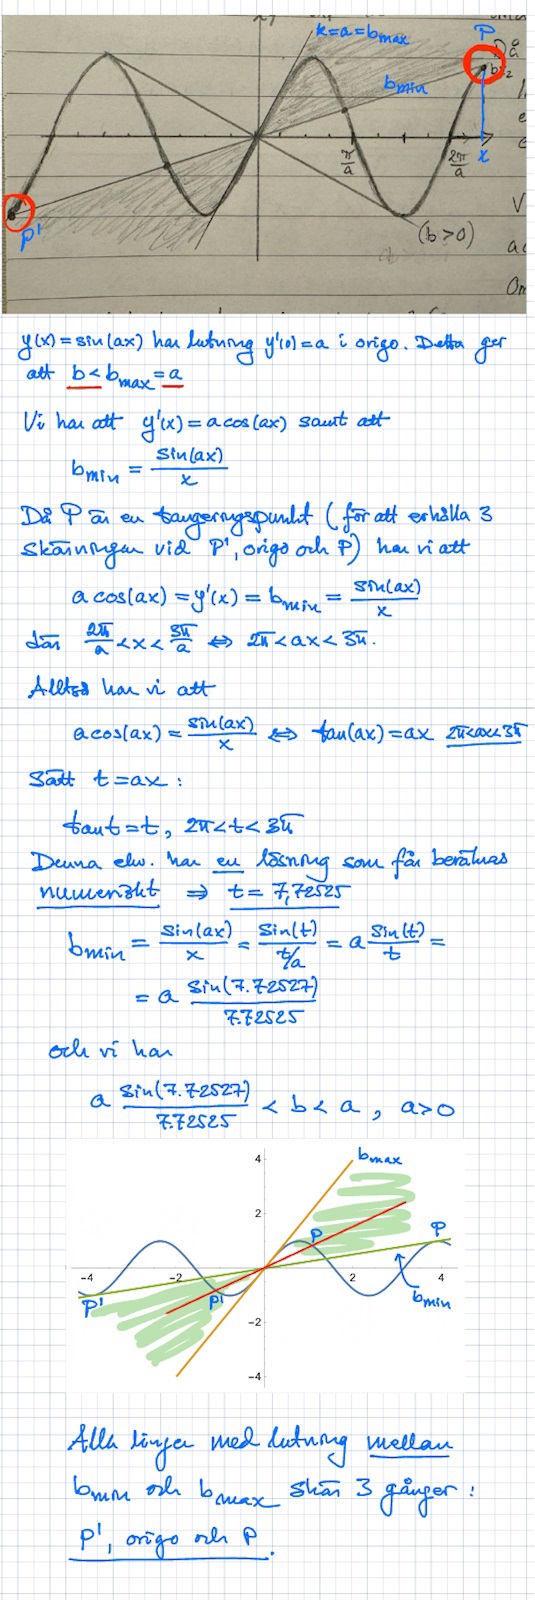 k=a=bmax
P
Då
bmin
b₂
π/a
2π/a
x
P'
(b>0)
V
Om
y(x)=sin(ax) har lutning y'(0)=a i origo. Detta ger
att b<bmax=a
Vi har att y'(x)=acos(ax) samt att
bmin = sin(ax)/x
Då P är en tangeringspunkt (för att erhålla 3
skärningar vid P', origo och P) har vi att
a cos(ax) = y'(x) = bmin = sin(ax)/x
där 2π/a < x < 3π/a ⇔ 2π < ax < 3π.
Alltså har vi att
acos(ax) = sin(ax)/x ⇔ tan(ax)=ax 2π<ax<3π
Sätt t=ax:
tant=t, 2π<t<3π
Denna ekv. har en lösning som fås beräknas
numeriskt ⇒ t=7,72525
bmin = sin(ax)/x = sin(t)/(t/a) = a sin(t)/t =
= a sin(7.72527)/7.72525
och vi har
a sin(7.72527)/7.72525 < b < a, a>0
bmax
4
2
P
P
-4
-2
2
4
P'
P'
bmin
-2
-4
Alla linjer med lutning mellan
bmin och bmax skär 3 gånger:
P', origo och P.